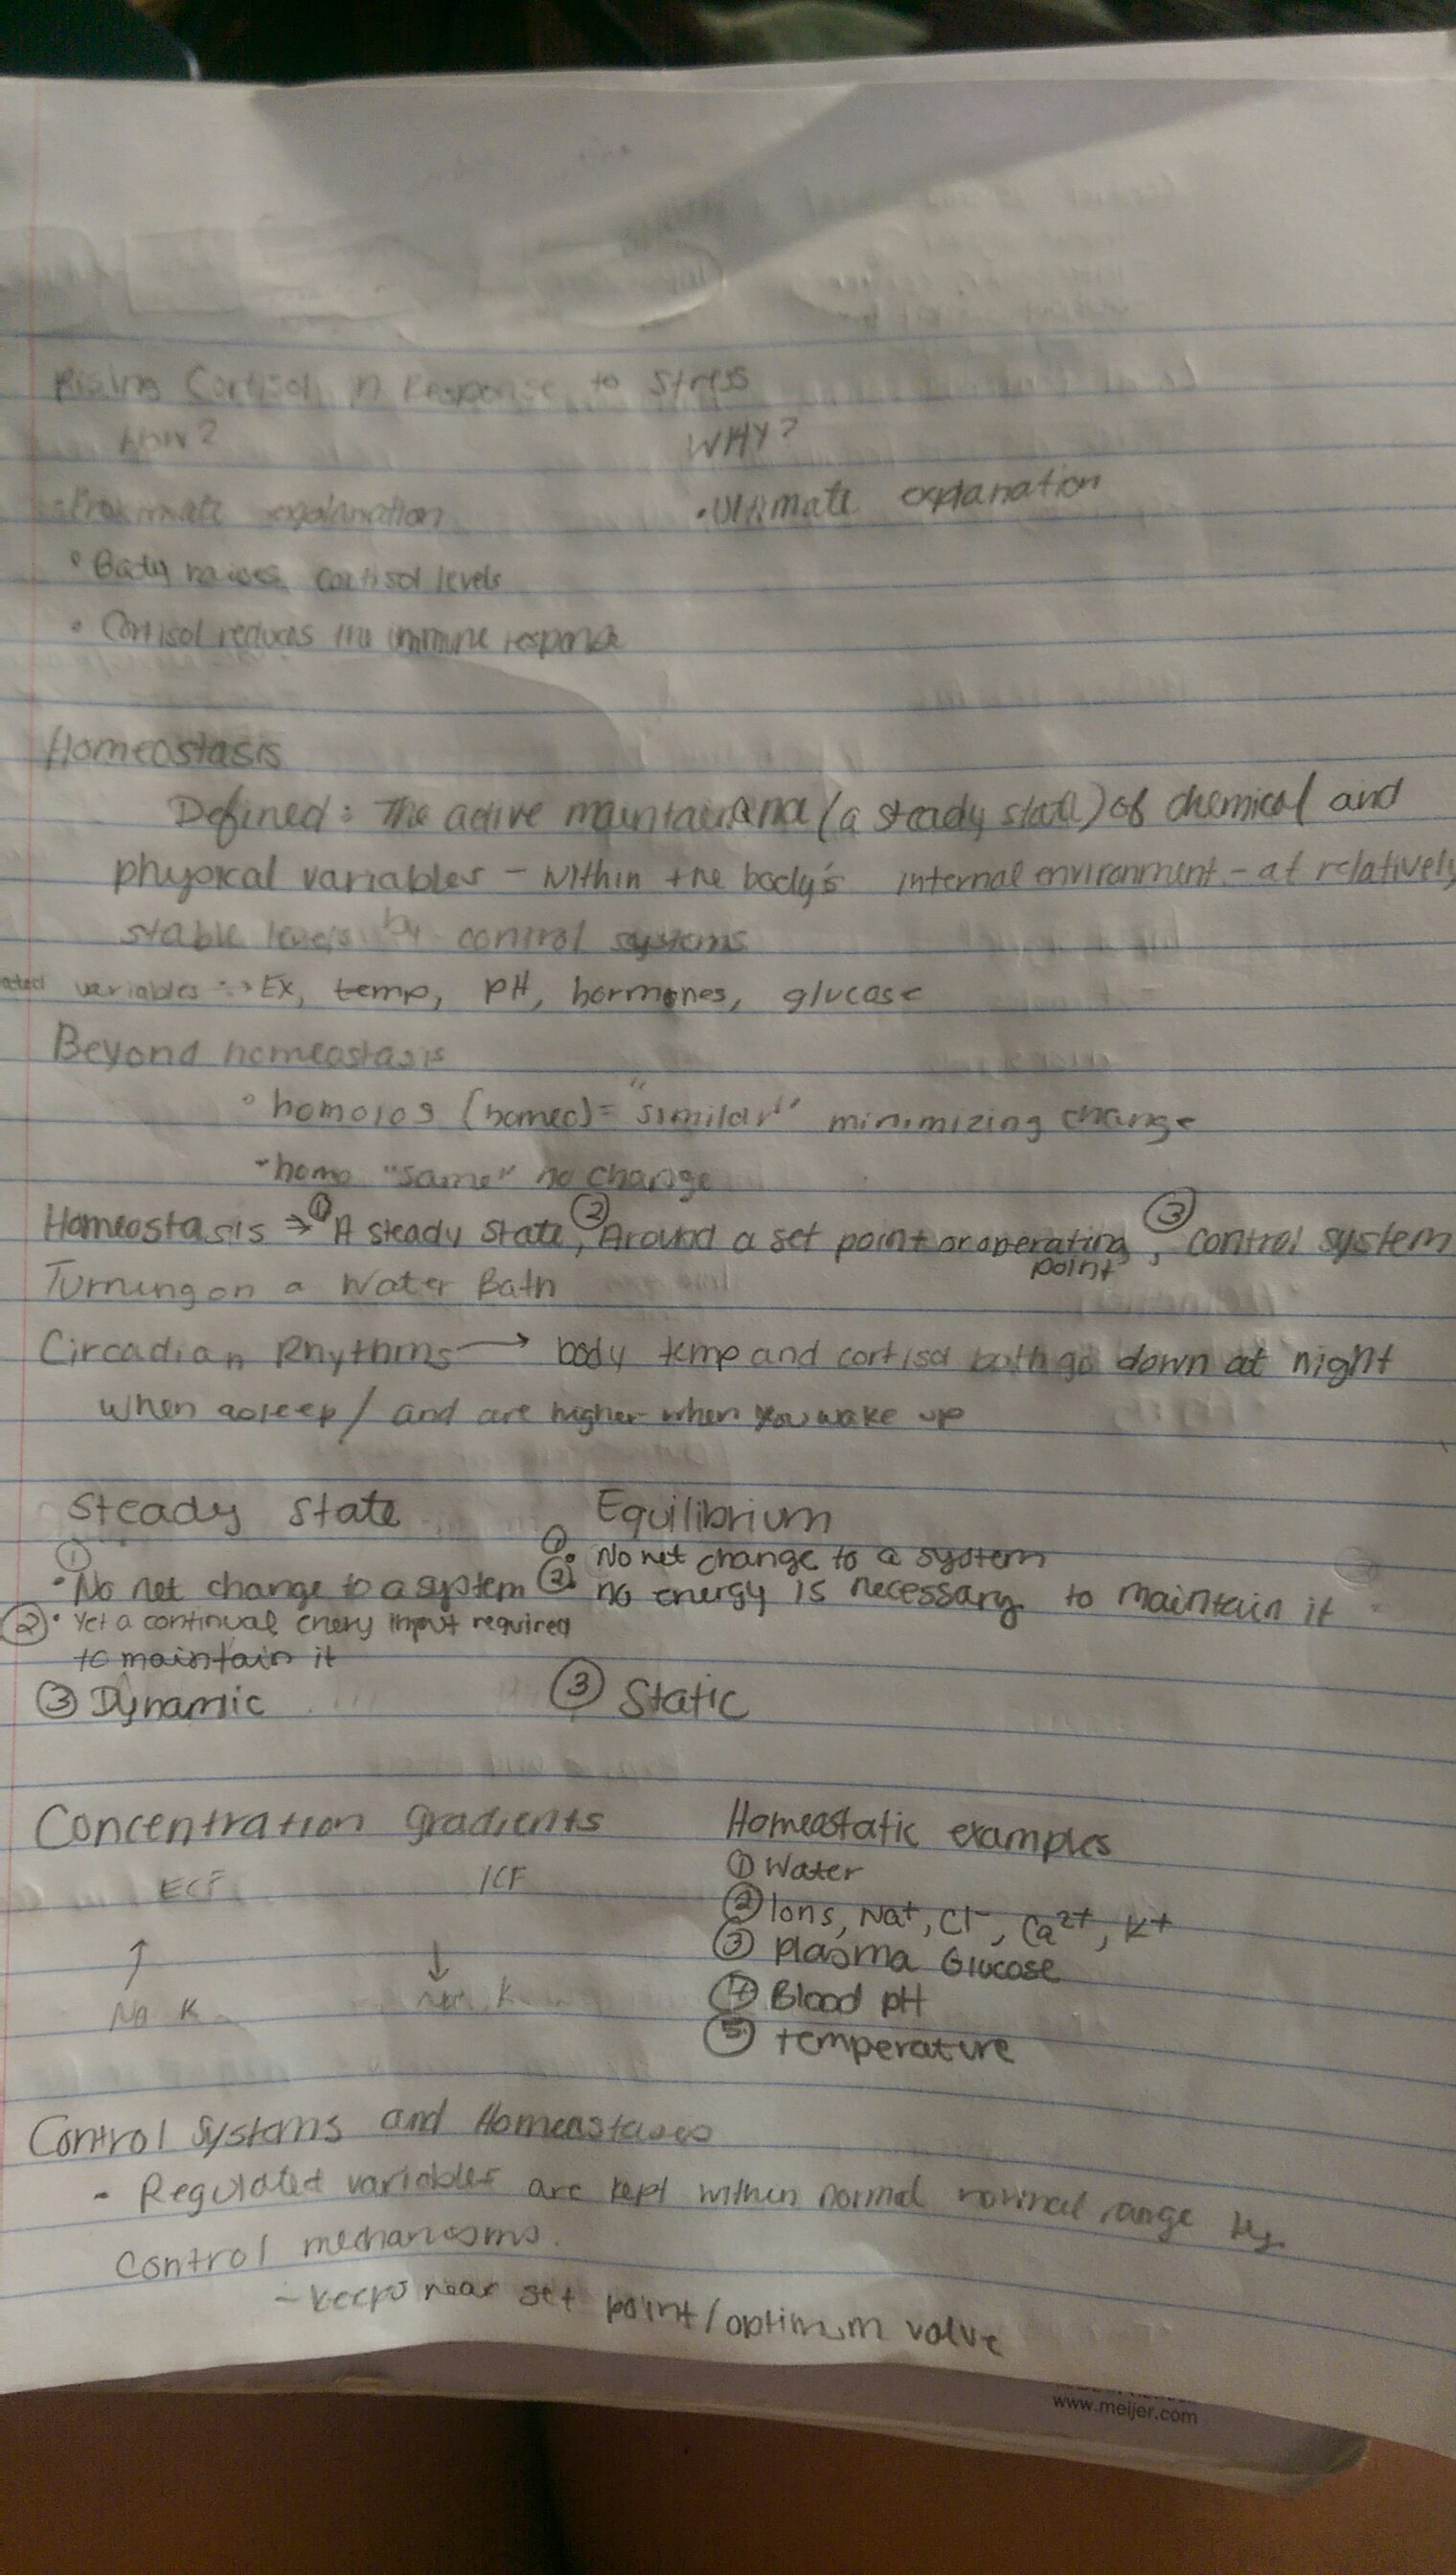 Rising Cortisol in Response to Stress
How? WHY?
Proximate explanation • Ultimate explanation
• Body raises cortisol levels
• Cortisol reduces the immune response
Homeostasis
Defined: The active maintainance (a steady state) of chemical and
physical variables - within the body's internal environment - at relatively
stable levels by control systems
variables → Ex, temp, pH, hormones, glucose
Beyond homeostasis
• homolos (homeo) = "similar" minimizing change
- homo "same" no change
Homeostasis ⇒ ① A steady state, ② Around a set point or operating point, ③ control system
Turning on a Water Bath
Circadian Rhythms → body temp and cortisol both go down at night
when asleep / and are higher when you wake up
Steady State Equilibrium
① • No net change to a system ① • No net change to a system
② • Yet a continual enery input required ② • no energy is necessary to maintain it
to maintain it
③ Dynamic ③ Static
Concentration gradients Homeostatic examples
ECF ICF ① Water
② Ions, Na+, Cl-, Ca2+, K+
↑ ↓ ③ Plasma Glucose
Na K K ④ Blood pH
⑤ temperature
Control Systems and Homeostases
- Regulated variables are kept within normal range by
control mechanisms.
- keeps near set point / optimum valve
www.meijer.com